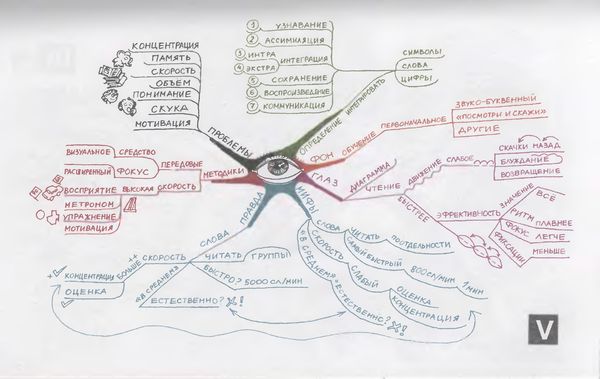 КОНЦЕНТРАЦИЯ
ПАМЯТЬ
СКОРОСТЬ
ОБЪЕМ
ПОНИМАНИЕ
СКУКА
МОТИВАЦИЯ
ПРОБЛЕМЫ
1 УЗНАВАНИЕ
2 АССИМИЛЯЦИЯ
3 ИНТРА
4 ЭКСТРА
ИНТЕГРАЦИЯ
5 СОХРАНЕНИЕ
6 ВОСПРОИЗВЕДЕНИЕ
7 КОММУНИКАЦИЯ
СИМВОЛЫ
СЛОВА
ЦИФРЫ
ИНТЕГРИРОВАТЬ
ОПРЕДЕЛЕНИЕ
ФОН
ОБУЧЕНИЕ
ПЕРВОНАЧАЛЬНОЕ
ЗВУКО-БУКВЕННЫЙ
«ПОСМОТРИ И СКАЖИ»
ДРУГИЕ
ГЛАЗ
ДИАГРАММА
ЧТЕНИЕ
ДВИЖЕНИЕ
СЛАБОЕ
СКАЧКИ НАЗАД
БЛУЖДАНИЕ
ВОЗВРАЩЕНИЕ
БЫСТРЕЕ
ЭФФЕКТИВНОСТЬ
ЗНАЧЕНИЕ
ВСЁ
РИТМ
ПЛАВНЕЕ
ФОКУС
ЛЕГЧЕ
ФИКСАЦИИ
МЕНЬШЕ
ВИЗУАЛЬНОЕ
СРЕДСТВО
РАСШИРЕННЫЙ
ФОКУС
ПЕРЕДОВЫЕ
ВОСПРИЯТИЕ
ВЫСОКАЯ
СКОРОСТЬ
МЕТОДИКИ
МЕТРОНОМ
УПРАЖНЕНИЕ
МОТИВАЦИЯ
ПРАВДА
СЛОВА
ЧИТАТЬ
ГРУППЫ
СКОРОСТЬ
БОЛЬШЕ
КОНЦЕНТРАЦИИ
ОЦЕНКА
БЫСТРО? 5000 СЛ/МИН
«В СРЕДНЕМ»
ЕСТЕСТВЕННО?
МИФЫ
СЛОВА
ЧИТАТЬ
ПО ОТДЕЛЬНОСТИ
СКОРОСТЬ
САМЫЙ БЫСТРЫЙ
800 СЛ/МИН
1 МИН
СЛАБЫЙ
ОЦЕНКА
КОНЦЕНТРАЦИЯ
«В СРЕДНЕМ»
ЕСТЕСТВЕННО?
V